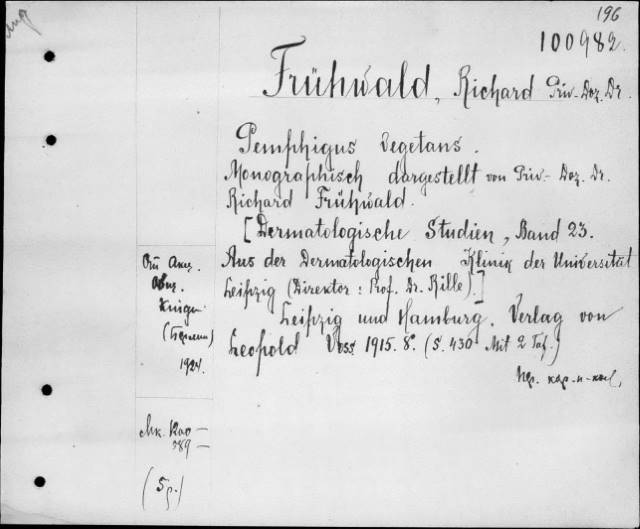 196
100982.
Frühwald, Richard Priv.-Doz. Dr.
Pemphigus vegetans.
Monographisch dargestellt von Priv.-Doz. Dr.
Richard Frühwald.
[Dermatologische Studien, Band 23.
Aus der Dermatologischen Klinik der Universität
Leipzig (Direktor: Prof. Dr. Rille).]
Leipzig und Hamburg. Verlag von
Leopold Voss 1915. 8°. (S. 430 Mit 2 Taf.)
Отъ Акц.
Общ.
Книги
(Берлин)
1924.
389
(5р.)